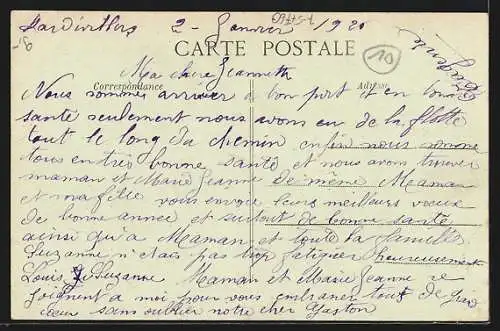 2 - Janvier 1920
CARTE POSTALE
10
Ma chère Jeannette
Correspondance Adresse
Nous sommes arriver à bon port et en bonne
santé seulement nous avons eu de la flotte
tout le long du chemin enfin nous sommes
tous en très bonne santé et nous avons trouver
maman et Marie Jeanne de même Maman
et ma fille vous envoie leurs meilleurs vœux
de bonne année et surtout de bonne santé
ainsi qu'a Maman et toute la famille
Suzanne n'étais pas trop fatiguée heureusement
Louis Suzanne Maman et Marie Jeanne se
joignent a moi pour vous embrasser tous de gros
sans oublier notre cher Gaston